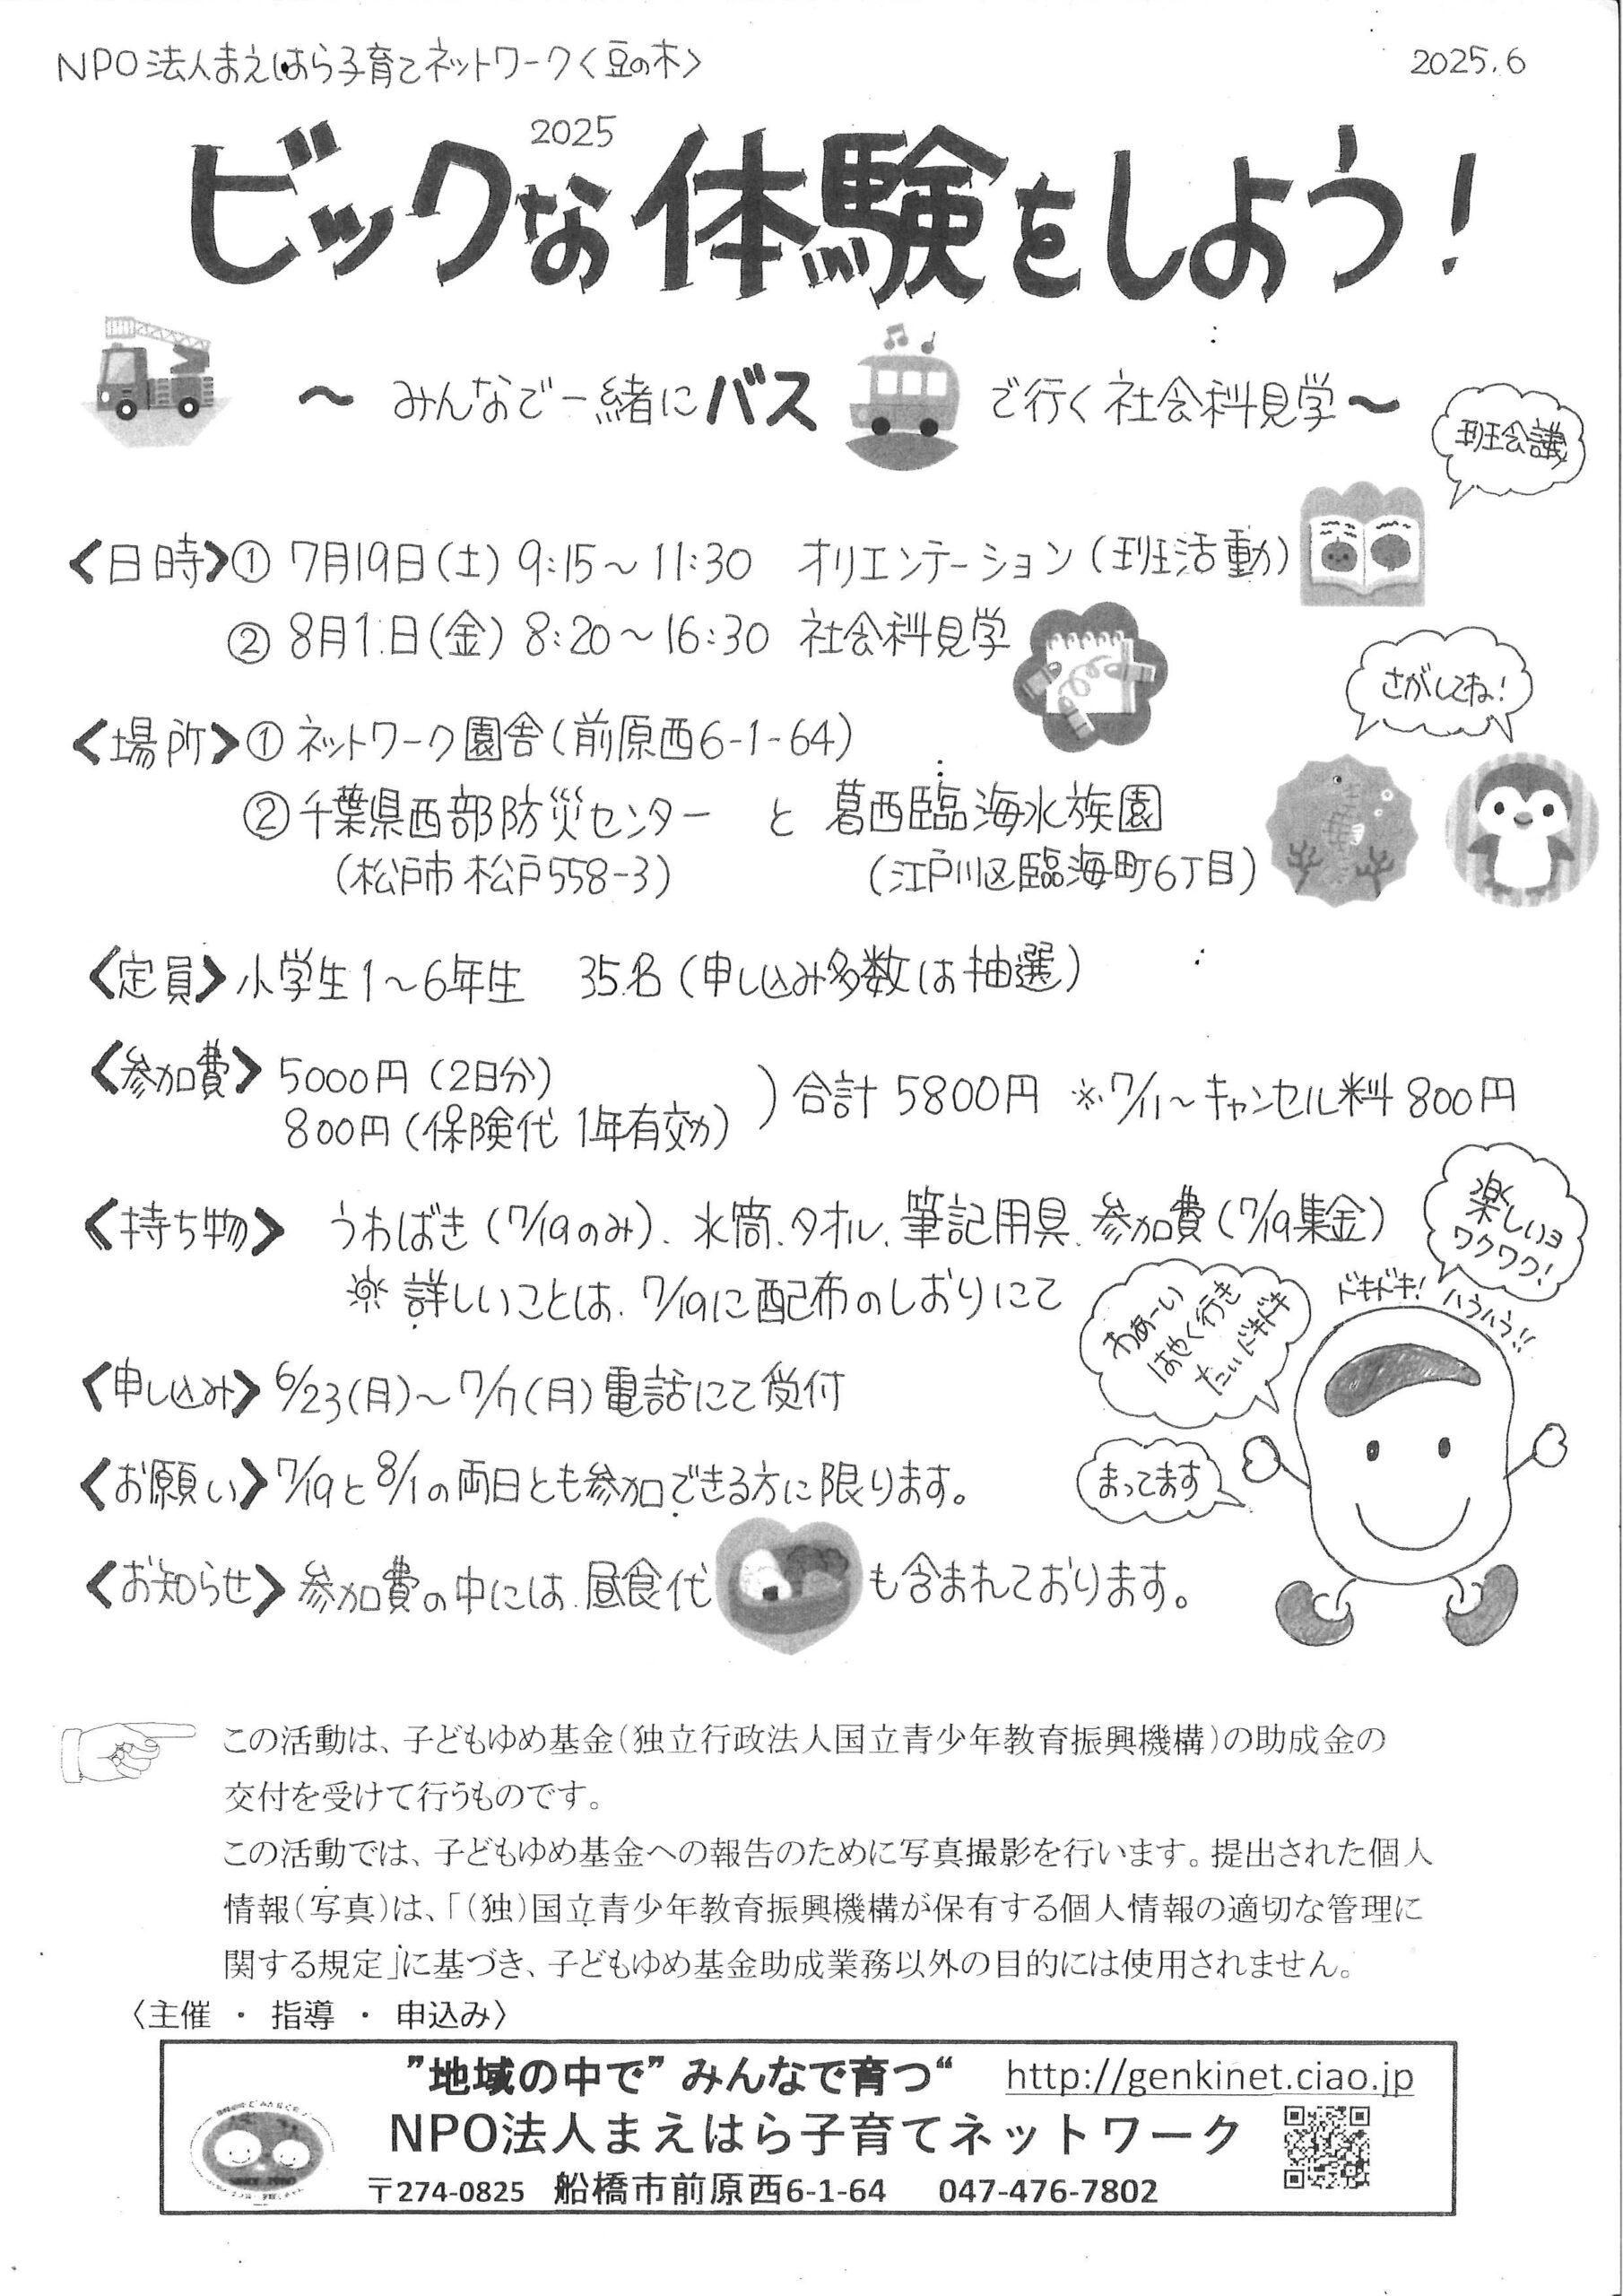 NPO法人まえはら子育てネットワーク〈豆の木〉
2025.6
2025
ビックな体験をしよう!
～ みんなで一緒にバスで行く社会科見学～
班会議
〈日時〉① 7月19日(土) 9:15～11:30 オリエンテーション(班活動)
② 8月1日(金) 8:20～16:30 社会科見学
さがしてね!
〈場所〉① ネットワーク園舎(前原西6-1-64)
② 千葉県西部防災センター と 葛西臨海水族園
(松戸市松戸558-3) (江戸川区臨海町6丁目)
〈定員〉小学生1～6年生 35名(申し込み多数は抽選)
〈参加費〉5000円(2日分)
800円(保険代 1年有効)
)合計 5800円 ※7/11～キャンセル料800円
〈持ち物〉 うわばき(7/19のみ)、水筒、タオル、筆記用具、参加費(7/19集金)
※ 詳しいことは、7/19に配布のしおりにて
楽しいヨ
ワクワク!
ドキドキ! ハラハラ!!
わあーい
はやく行き
たい ドキドキ
〈申し込み〉6/23(月)～7/7(月)電話にて受付
〈お願い〉7/19と8/1の両日とも参加できる方に限ります。
まってます
〈お知らせ〉参加費の中には、昼食代も含まれております。
この活動は、子どもゆめ基金(独立行政法人国立青少年教育振興機構)の助成金の
交付を受けて行うものです。
この活動では、子どもゆめ基金への報告のために写真撮影を行います。提出された個人
情報(写真)は、「(独)国立青少年教育振興機構が保有する個人情報の適切な管理に
関する規定」に基づき、子どもゆめ基金助成業務以外の目的には使用されません。
〈主催 ・ 指導 ・ 申込み〉
”地域の中で” みんなで育つ“ http://genkinet.ciao.jp
NPO法人まえはら子育てネットワーク
〒274-0825 船橋市前原西6-1-64 047-476-7802